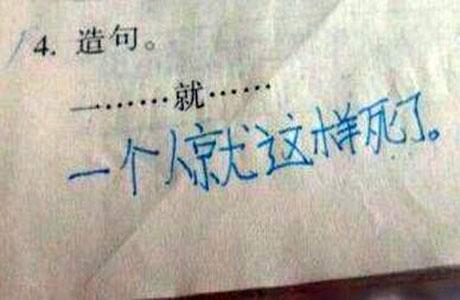 4. 造句。
一……就……
一个人就这样死了。